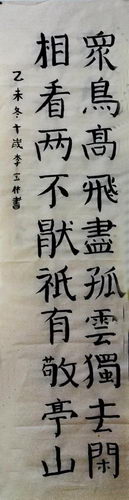 眾鳥高飛盡孤雲獨去閑
相看两不厭祇有敬亭山
乙未冬十歲李宝林書